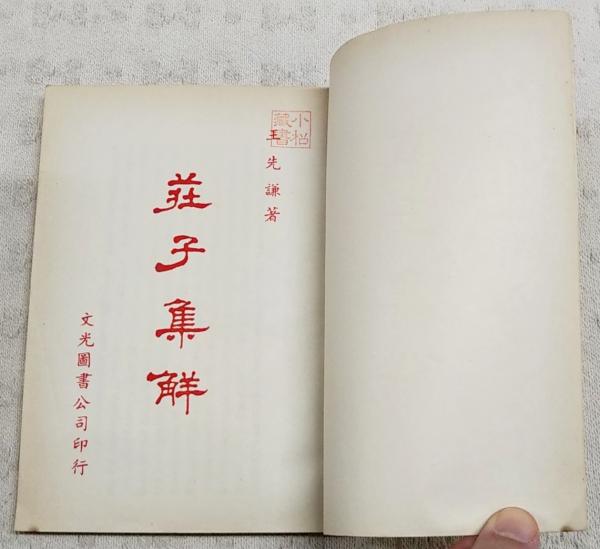 王先謙著
莊子集解
文光圖書公司印行
小松藏書